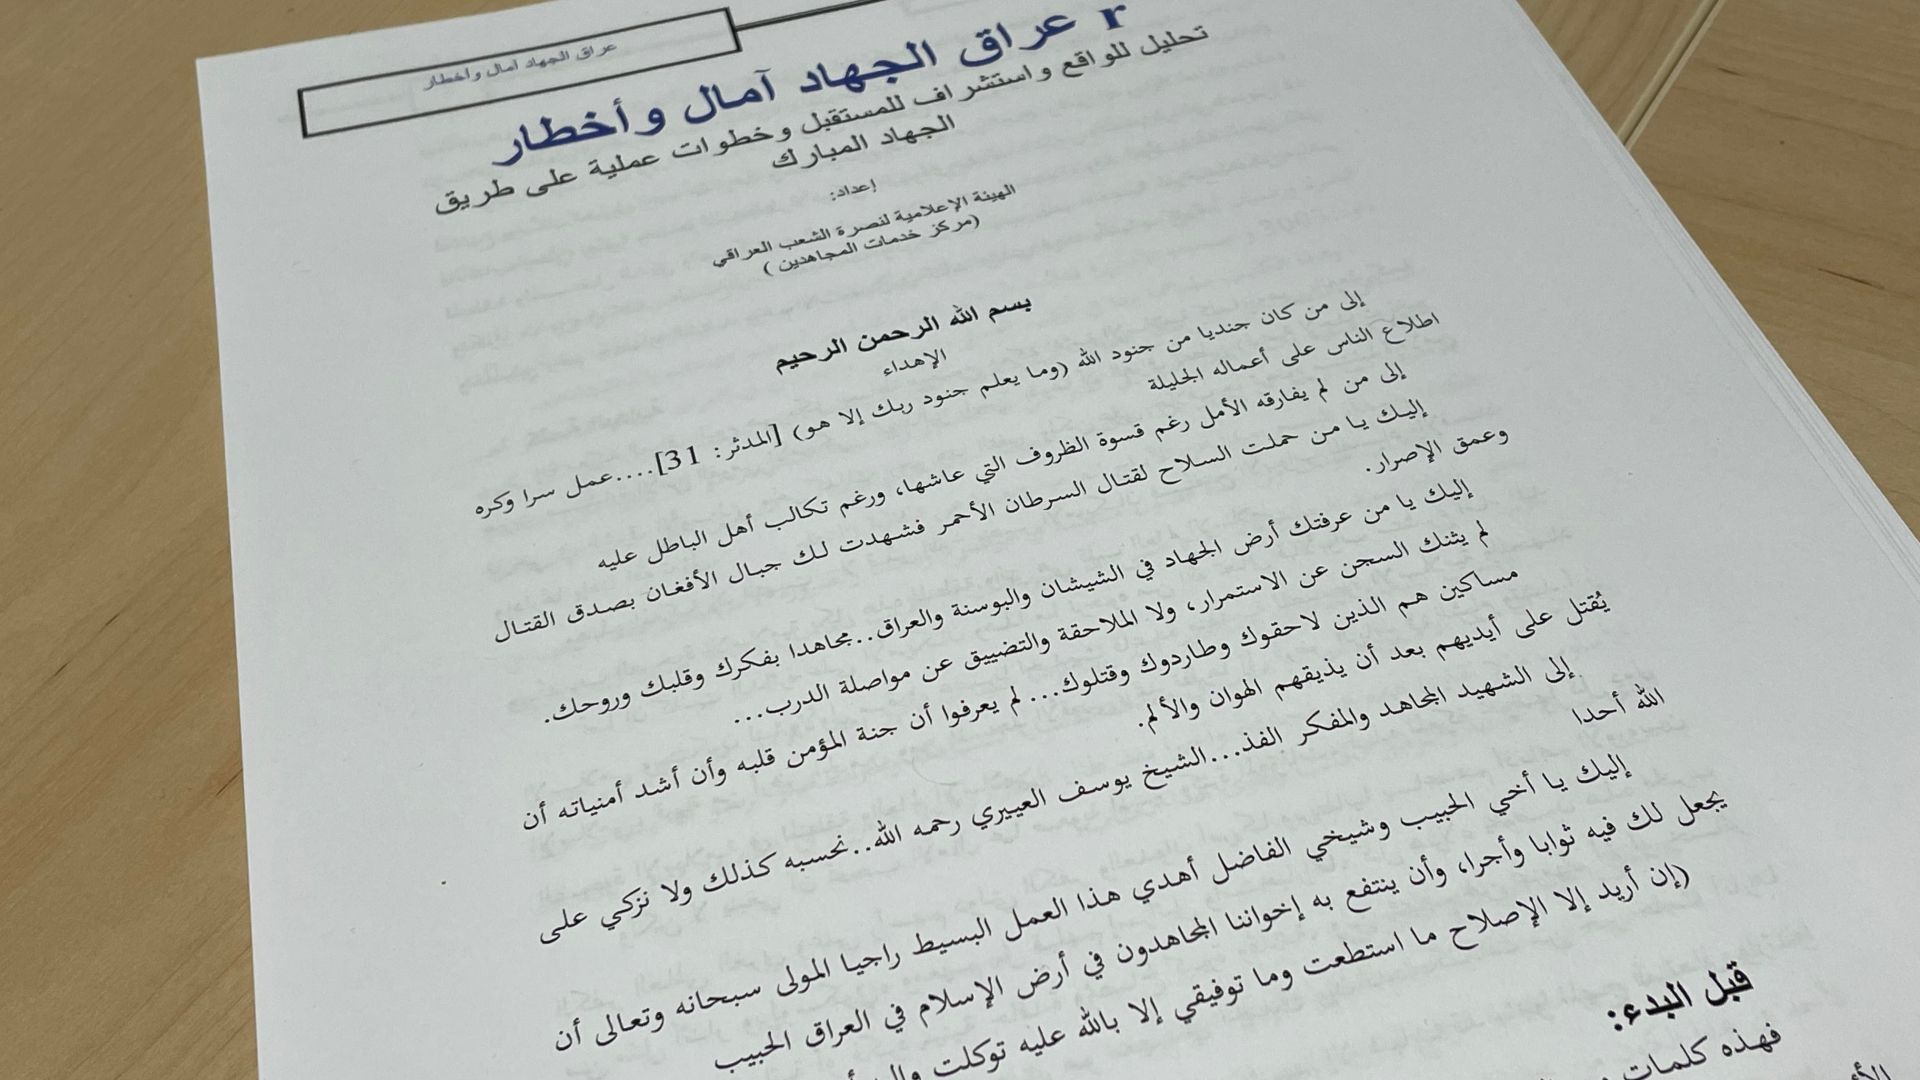 عراق الجهاد آمال وأخطار
r عراق الجهاد آمال وأخطار
تحليل للواقع واستشراف للمستقبل وخطوات عملية على طريق
الجهاد المبارك
إعداد:
الهيئة الإعلامية لنصرة الشعب العراقي
(مركز خدمات المجاهدين )
بسم الله الرحمن الرحيم
الإهداء
إلى من كان جنديا من جنود الله (وما يعلم جنود ربك إلا هو) [المدثر: 31]....عمل سرا وكره
اطلاع الناس على أعماله الجليلة
إلى من لم يفارقه الأمل رغم قسوة الظروف التي عاشها، ورغم تكالب أهل الباطل عليه
إليك يا من حملت السلاح لقتال السرطان الأحمر فشهدت لك جبال الأفغان بصدق القتال
وعمق الإصرار.
إليك يا من عرفتك أرض الجهاد في الشيشان والبوسنة والعراق..مجاهدا بفكرك وقلبك وروحك.
لم يثنك السجن عن الاستمرار، ولا الملاحقة والتضييق عن مواصلة الدرب...
مساكين هم الذين لاحقوك وطاردوك وقتلوك... لم يعرفوا أن جنة المؤمن قلبه وأن أشد أمنياته أن
يُقتل على أيديهم بعد أن يذيقهم الهوان والألم.
إلى الشهيد المجاهد والمفكر الفذ...الشيخ يوسف العييري رحمه الله..نحسبه كذلك ولا نزكي على
الله أحدا
إليك يا أخي الحبيب وشيخي الفاضل أهدي هذا العمل البسيط راجيا المولى سبحانه وتعالى أن
يجعل لك فيه ثوابا وأجرا، وأن ينتفع به إخواننا المجاهدون في أرض الإسلام في العراق الحبيب
(إن أريد إلا الإصلاح ما استطعت وما توفيقي إلا بالله عليه توكلت
قبل البدء:
فهذه كلمات